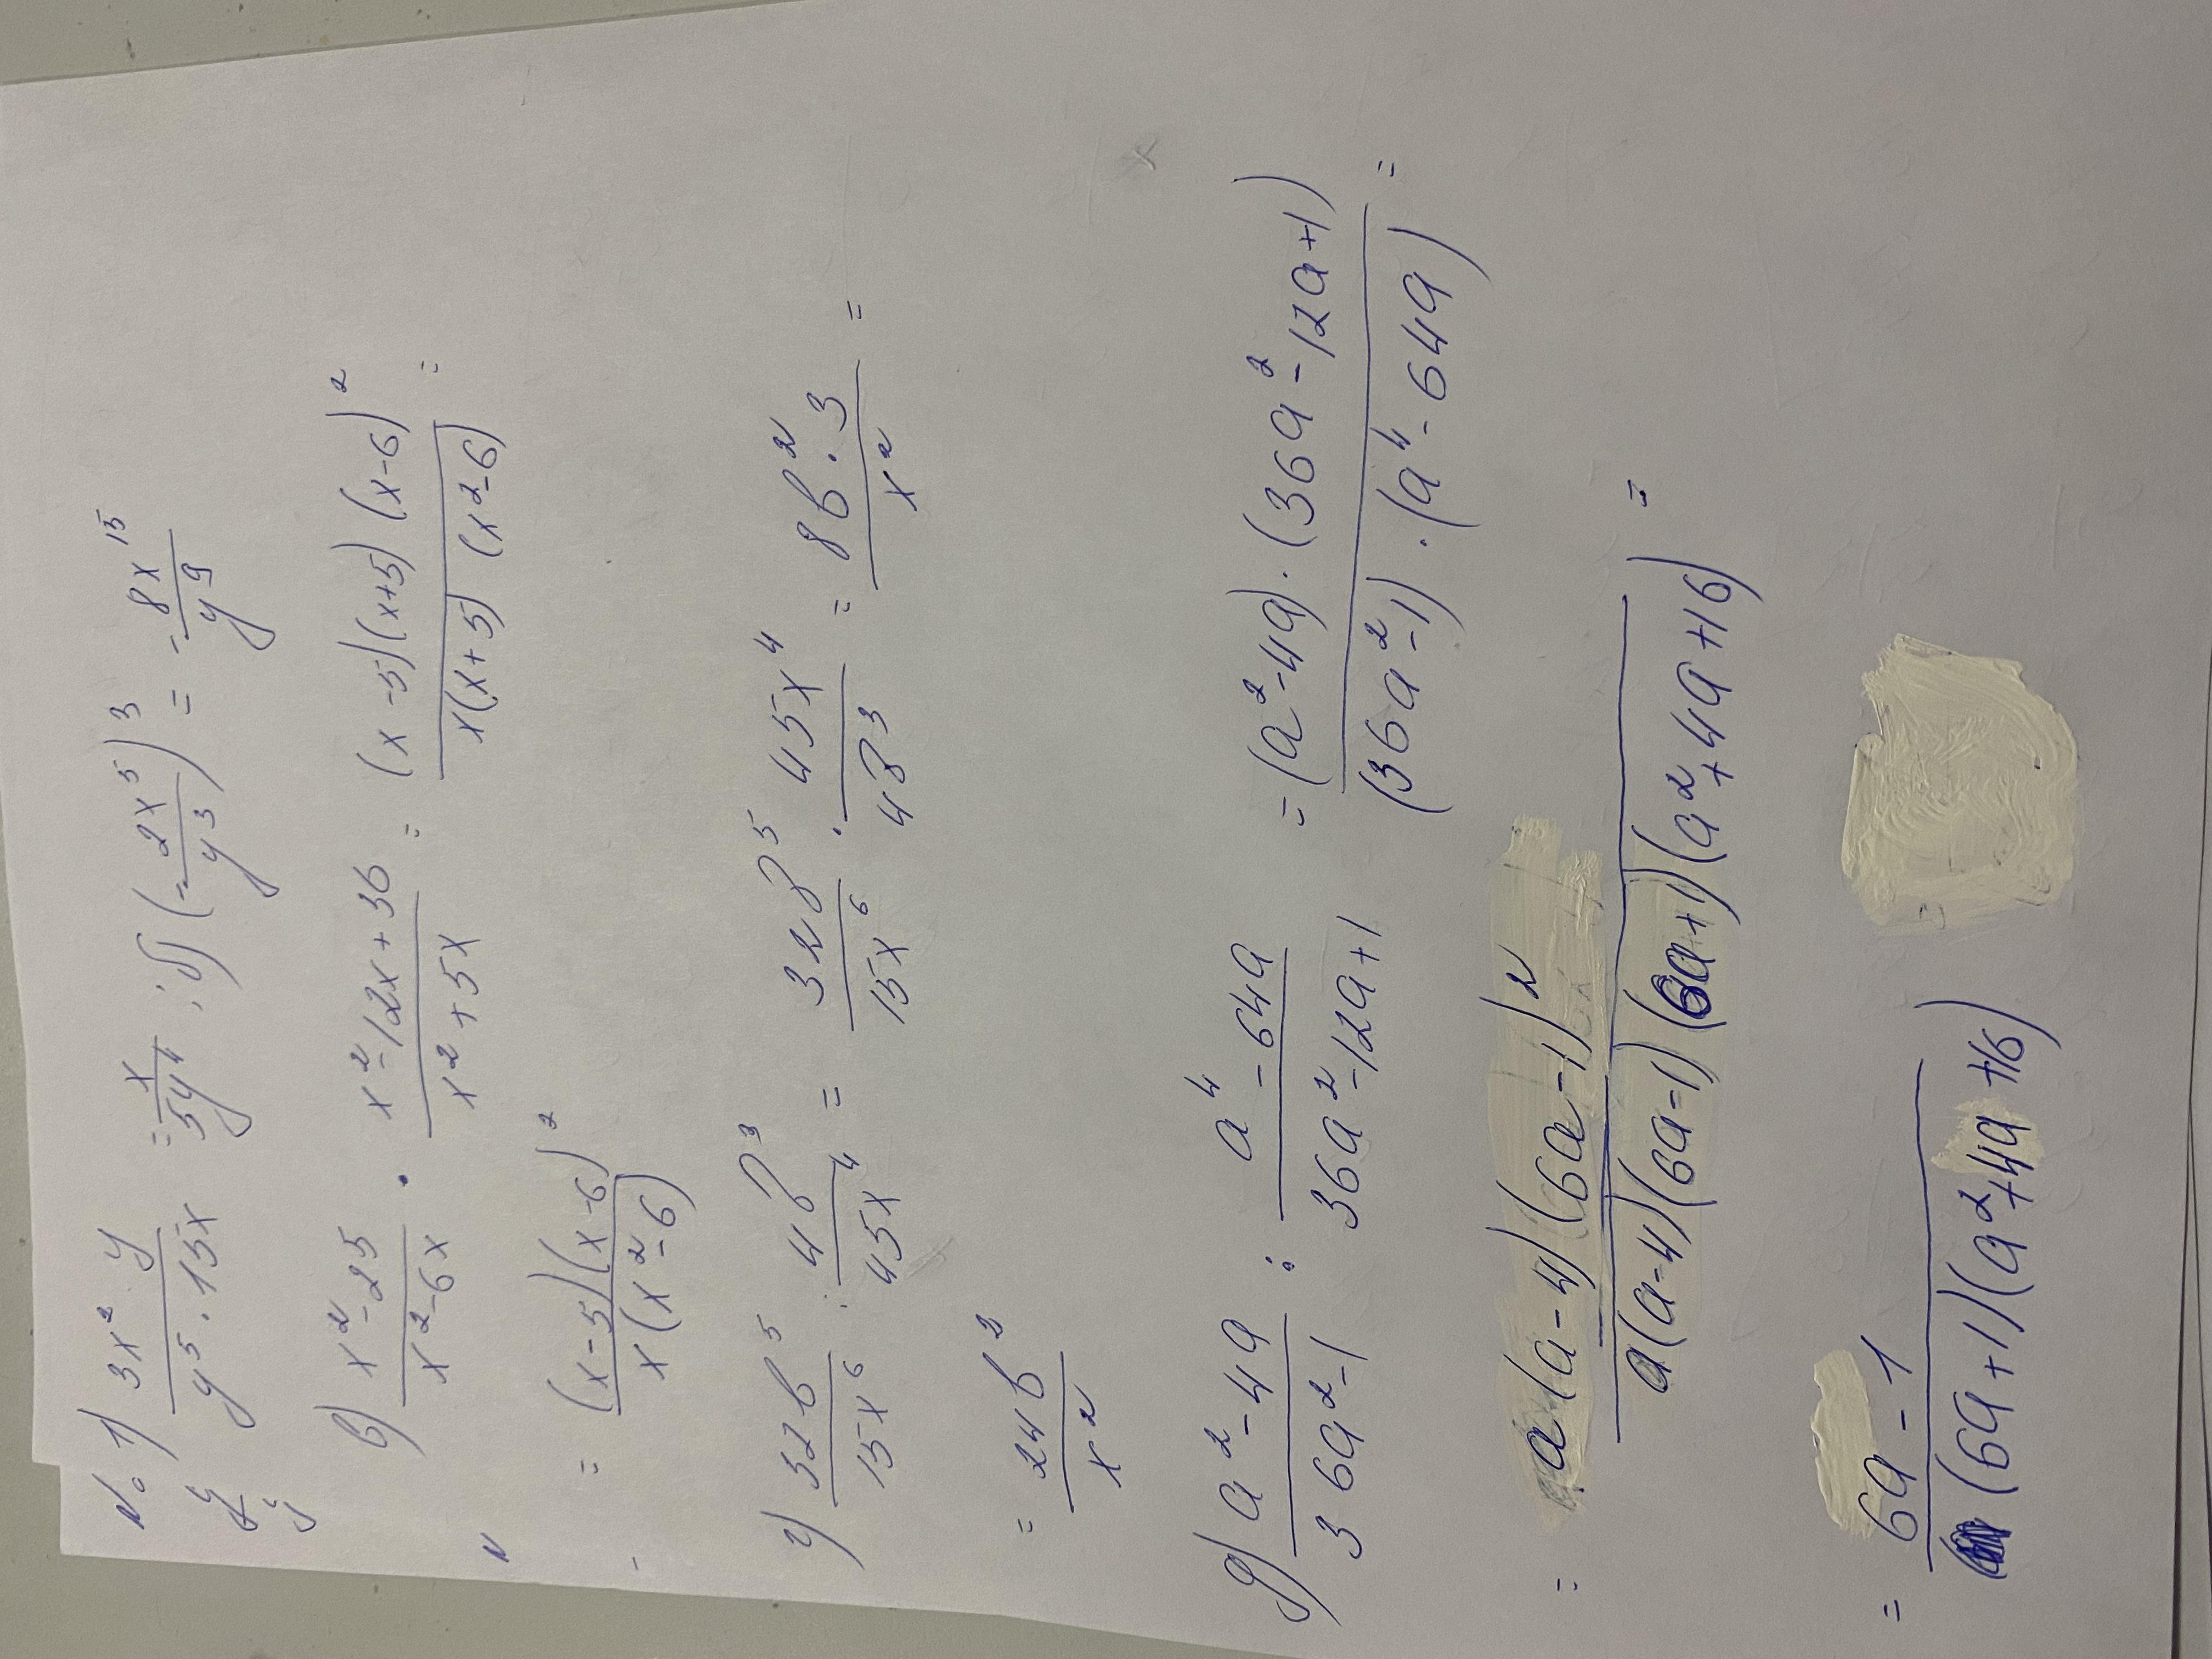 N. 1) 3x² y / y⁵ · 15x = x / 5y⁴ ; б) (- 2x⁵ / y³)³ = - 8x¹⁵ / y⁹
в) x² - 25 / x² - 6x · x² - 12x + 36 / x² + 5x = (x - 5)(x + 5)(x - 6)² / x(x + 5) (x² - 6) =
= (x - 5)(x - 6)² / x(x² - 6)
г) 32b⁵ / 15x⁶ : 4b³ / 45x⁴ = 32b⁵ / 15x⁶ · 45x⁴ / 4b³ = 8b² · 3 / x² =
= 24b² / x²
д) a² - 4a / 36a² - 1 : a⁴ - 64a / 36a² - 12a + 1 = (a² - 4a) · (36a² - 12a + 1) / (36a² - 1) · (a⁴ - 64a) =
= a(a - 4)(6a - 1)² / a(a - 4)(6a - 1)(6a + 1)(a² + 4a + 16) =
= 6a - 1 / (6a + 1)(a² + 4a + 16)